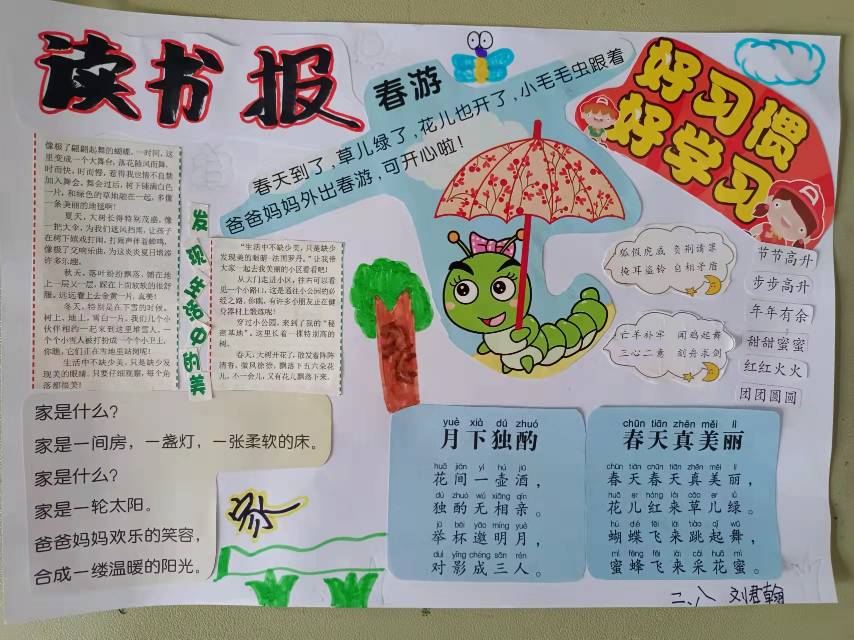 读书报
春游
春天到了，草儿绿了，花儿也开了，小毛毛虫跟着
爸爸妈妈外出春游，可开心啦！
好习惯
好学习
发现生活中的美
像极了翩翩起舞的蝴蝶。一时间，这
里变成一个大舞台，落花随风而舞，
时而快，时而慢，惹得我也情不自禁
加入舞会。舞会过后，树下铺满白色
一片，和绿色的草地融在一起，多像
一条美丽的地毯啊！
夏天，大树长得特别茂盛，像
一把大伞，为我们遮风挡雨，让孩子
在树下嬉戏打闹，打闹声伴着蝉鸣，
像极了交响乐曲，为这炎炎夏日增添
许多乐趣。
秋天，落叶纷纷飘落，铺在地
上一层又一层，踩在上面软软的很舒
服。远远看上去金黄一片，真美！
冬天，特别是在下雪的时候，
树上、地上，雪白一片，我们几个小
伙伴相约一起来到这里堆雪人，一
个个小雪人被打扮成一个个小卫士，
你瞧，它们正在雪地里站岗呢！
生活中不缺少美，只是缺少发
现美的眼睛。只要仔细观察，每个角
落都很美！
“生活中不缺少美，只是缺少
发现美的眼睛-法国罗丹。”让我带
大家一起去我美丽的小区看看吧！
从大门走进小区，往右可以看
见一个小路口，这是通往小公园的必
经之路。你瞧，有许多小朋友正在健
身器材上锻炼呢！
穿过小公园，来到了我的“秘
密基地”，这里长着一棵特别高的
树。
春天，大树开花了，散发着阵阵
清香。微风徐徐，飘落下五六朵花
儿，不一会儿，又有花儿飘落下来，
狐假虎威 负荆请罪
掩耳盗铃 自相矛盾
亡羊补牢 闻鸡起舞
三心二意 刻舟求剑
节节高升
步步高升
年年有余
甜甜蜜蜜
红红火火
团团圆圆
家是什么？
家是一间房，一盏灯，一张柔软的床。
家是什么？
家是一轮太阳。
爸爸妈妈欢乐的笑容，
合成一缕温暖的阳光。
家
yuè xià dú zhuó
月下独酌
huā jiān yì hú jiǔ
花间一壶酒，
dú zhuó wú xiāng qīn
独酌无相亲。
jǔ bēi yāo míng yuè
举杯邀明月，
duì yǐng chéng sān rén
对影成三人。
chūn tiān zhēn měi lì
春天真美丽
chūn tiān chūn tiān zhēn měi lì
春天春天真美丽，
huā er hóng lái cǎo er lǜ
花儿红来草儿绿。
hú dié fēi lái tiào qǐ wǔ
蝴蝶飞来跳起舞，
mì fēng fēi lái cǎi huā mì
蜜蜂飞来采花蜜。
二、八 刘君翰